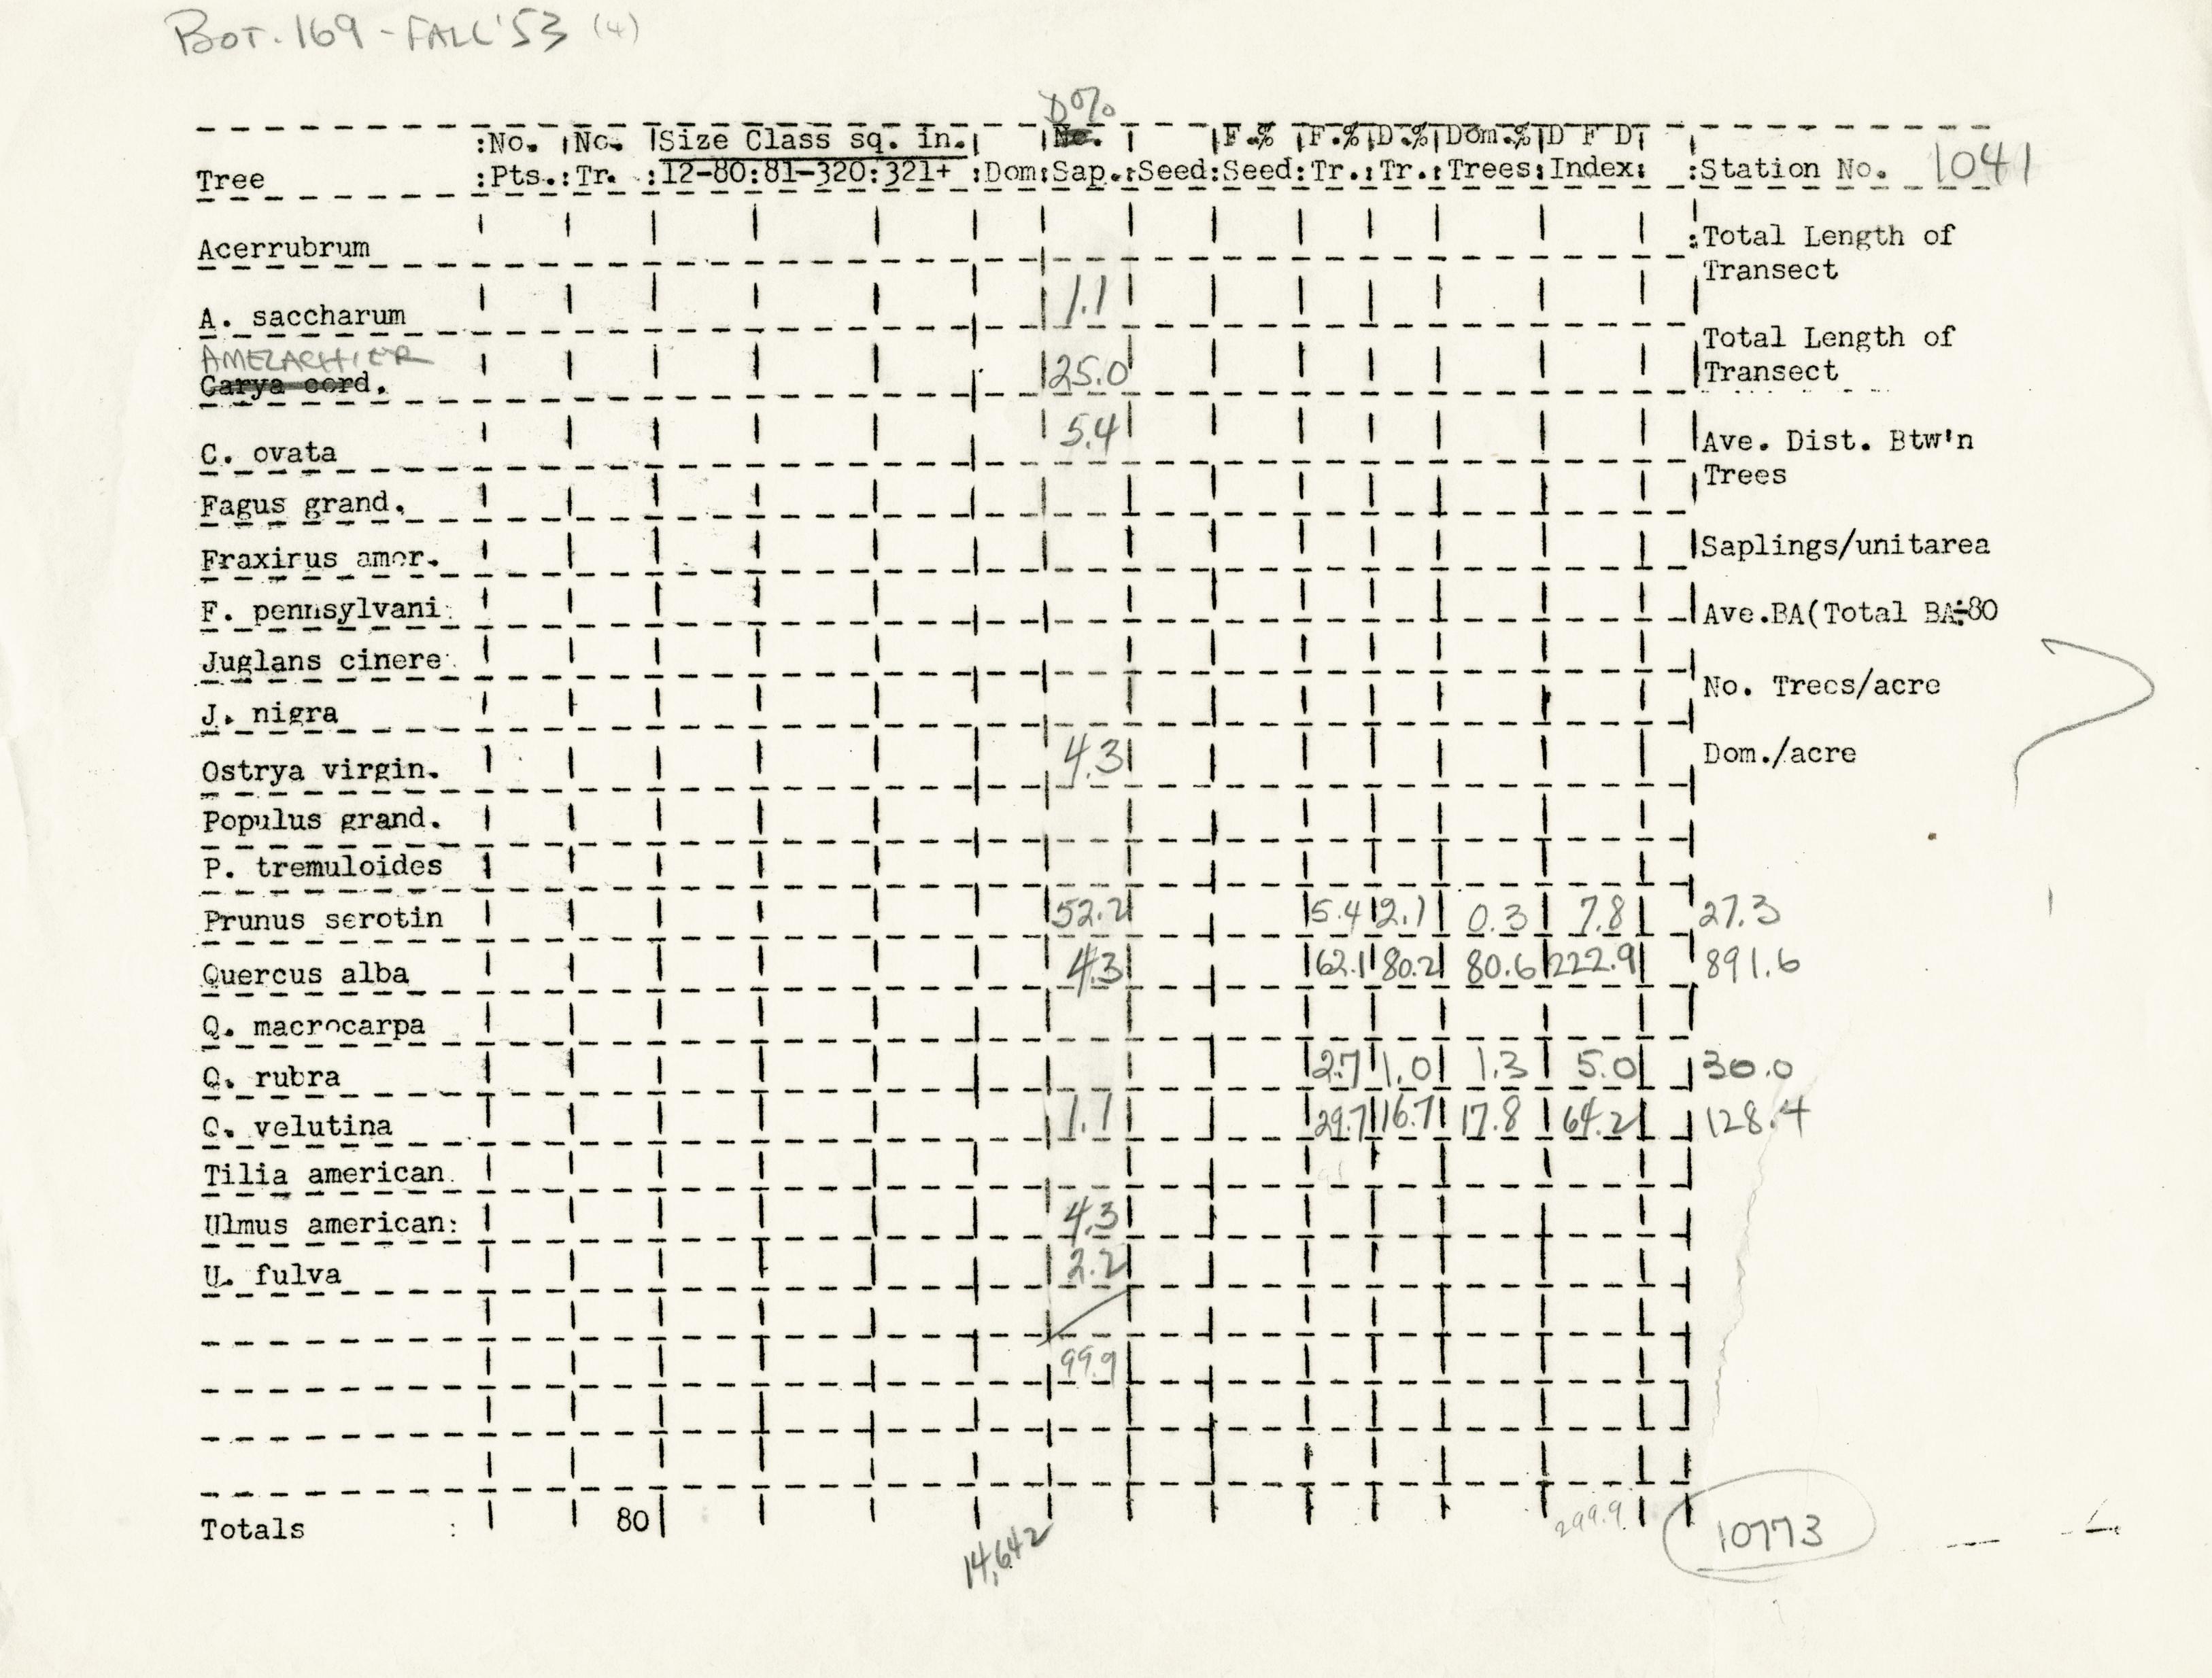 BOT. 169 - FALL '53 (4)
D%
:No. No. Size Class sq. in. No. F.% F.% D.% Dom.% D F D
Tree :Pts.:Tr. :12-80:81-320:321+ :Dom:Sap.:Seed:Seed:Tr.:Tr.:Trees:Index: :Station No. 1041
Acerrubrum :Total Length of
Transect
A. saccharum 1.1
Total Length of
AMELACHIER 25.0
Carya cord. Transect
C. ovata 5.4 Ave. Dist. Btw'n
Trees
Fagus grand.
Fraxirus amer. Saplings/unitarea
F. pennsylvani: Ave.BA(Total BA÷80
Juglans cinere:
No. Trees/acre
J. nigra
Ostrya virgin. 4.3 Dom./acre
Populus grand.
P. tremuloides
Prunus serotin 52.2 5.4 2.1 0.3 7.8 27.3
Quercus alba 4.3 62.1 80.2 80.6 222.9 891.6
Q. macrocarpa
Q. rubra 2.7 1.0 1.3 5.0 30.0
Q. velutina 1.1 29.7 16.7 17.8 64.2 128.4
Tilia american.
Ulmus american: 4.3
U. fulva 2.2
99.9
Totals : 80 14,642 299.9 10773